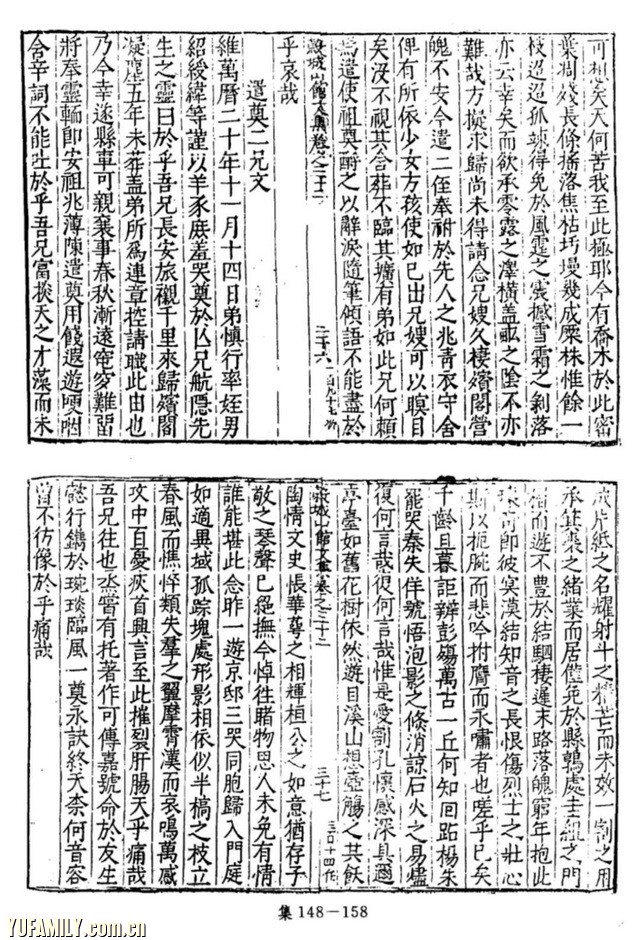 可想矣天何苦我至此極耶今有喬木於此密
葉凋殘長條搖落焦枯圬墁幾成槩株惟餘一
枝迢迢孤竦得免於風霆之震撼雪霜之剝落
亦云幸矣而欲承零露之澤橫蓋畝之陰不亦
難哉方擬求歸尚未得請念兄嫂久棲殯閣營
魄不安今遣二侄奉祔於先人之兆青衣守舍
俾有所依少女方孩使如已出兄嫂可以瞑目
矣汝不視其含葬不臨其壙有弟如此兄何賴
焉遣使祖奠酹之以辭淚隨筆傾語不能盡於
乎哀哉
穀城山館文集卷之三十二
三十六
遣奠二兄文
維萬曆二十年十一月十四日弟慎行率姪男
紹綬緯等謹以羊豕庶羞哭奠於仏兄航隱先
生之靈曰於乎吾兄長安旅櫬千里來歸殯閣
凝塵五年未葬蓋弟所為連章控請職此由也
乃今幸遂縣車可親襄事春秋漸遠窀穸難留
將奉靈輀即安祖兆薄陳遣奠用餞遐遊哽咽
含辛詞不能吐於乎吾兄富掞天之才藻而未
成片紙之名耀射斗之精芒而未效一割之用
承箕裘之緒業而居僅免於縣鶉處主組之門
楣而遊不豐於結駟棲遲末路落魄窮年抱此
琛奇即彼冥漠結知音之長恨傷烈士之壯心
斯以扼腕而悲吟拊膺而永嘯者也嗟乎已矣
子齡且暮詎辨彭殤萬古一丘何知回跖楊朱
罷哭秦失佯號悟泡影之條消諒石火之易燼
復何言哉復何言哉惟是愛割孔懷感深具邇
亭臺如舊花樹依然遊目溪山想壺觴之其飫
穀城山館文集卷之三十二
三十七
陶情文史悵華萼之相輝桓公之如意猶存子
敬之琴聲已絕撫今悼往睹物思人未免有情
誰能堪此念昨一遊京邸三哭同胞歸入門庭
如適異域孤踪塊處形影相依似半槁之枝立
春風而憔悴類失羣之翼摩霄漢而哀鳴萬感
攻中百憂疚首興言至此摧裂肝腸天乎痛哉
吾兄往也烝嘗有托著作可傳嘉號命於友生
懿行鐫於琬琰臨風一奠永訣終天柰何音容
曾不彷像於乎痛哉
集 148－158
YUFAMILY.com.cn